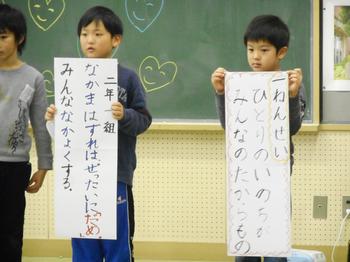 二年一組
なかまはずれは、ぜったいに「だめ」
みんななかよくする。
一ねんせい
ひとりのいのちが
みんなのたからもの